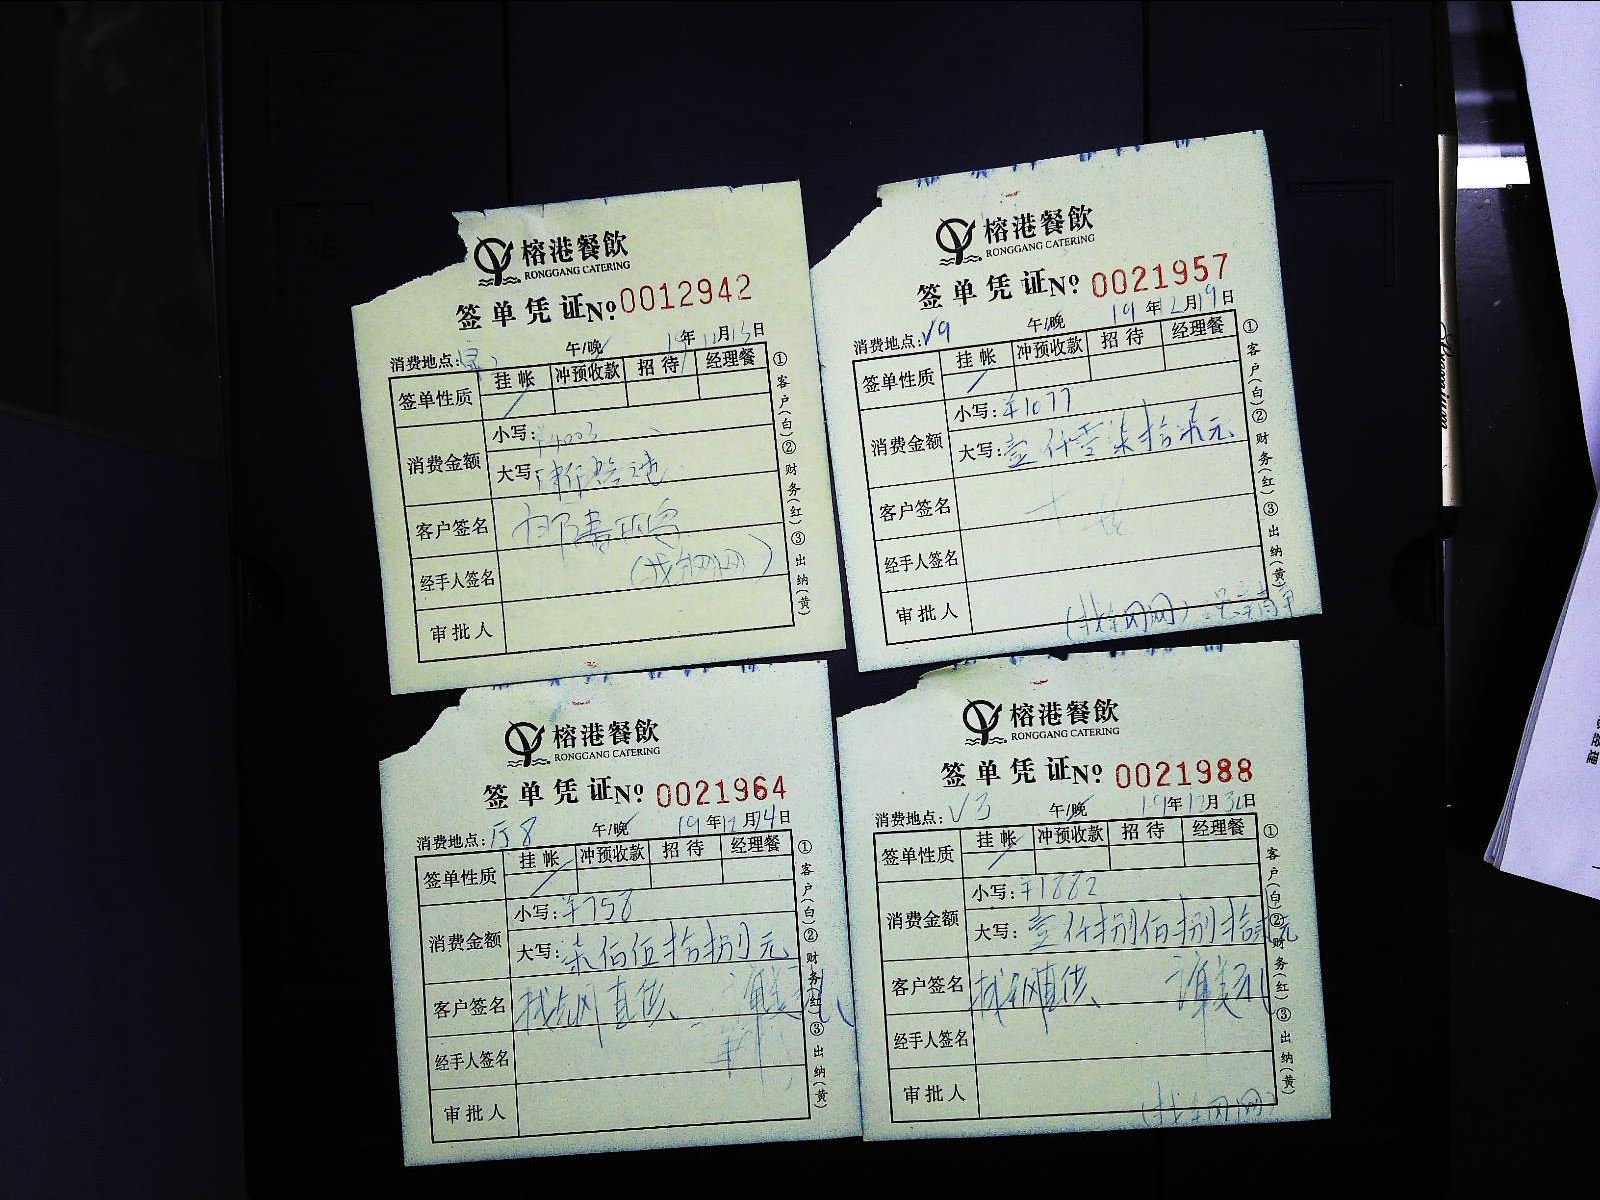 榕港餐飲
RONGGANG CATERING
签单凭证 No 0012942
19年 月13日
消费地点: 午/晚
签单性质 挂帐 冲预收款 招待 经理餐
消费金额
小写:¥4003
大写:
客户签名
经手人签名 (找钢网)
审批人
①客户(白)②财务(红)③出纳(黄)
榕港餐飲
RONGGANG CATERING
签单凭证 No 0021957
19年12月19日
消费地点:V9 午/晚
签单性质 挂帐 冲预收款 招待 经理餐
消费金额
小写:¥1077
大写:壹仟零柒拾柒元
客户签名
经手人签名
审批人 (找钢网)
①客户(白)②财务(红)③出纳(黄)
榕港餐飲
RONGGANG CATERING
签单凭证 No 0021964
19年12月24日
消费地点:厅8 午/晚
签单性质 挂帐 冲预收款 招待 经理餐
消费金额
小写:¥758
大写:柒佰伍拾捌元
客户签名 找钢网直供
经手人签名
审批人
①客户(白)②财务(红)③出纳(黄)
榕港餐飲
RONGGANG CATERING
签单凭证 No 0021988
19年12月30日
消费地点:V3 午/晚
签单性质 挂帐 冲预收款 招待 经理餐
消费金额
小写:¥1882
大写:壹仟捌佰捌拾贰元
客户签名 找钢网直供
经手人签名
审批人 (找钢网)
①客户(白)②财务(红)③出纳(黄)
经理